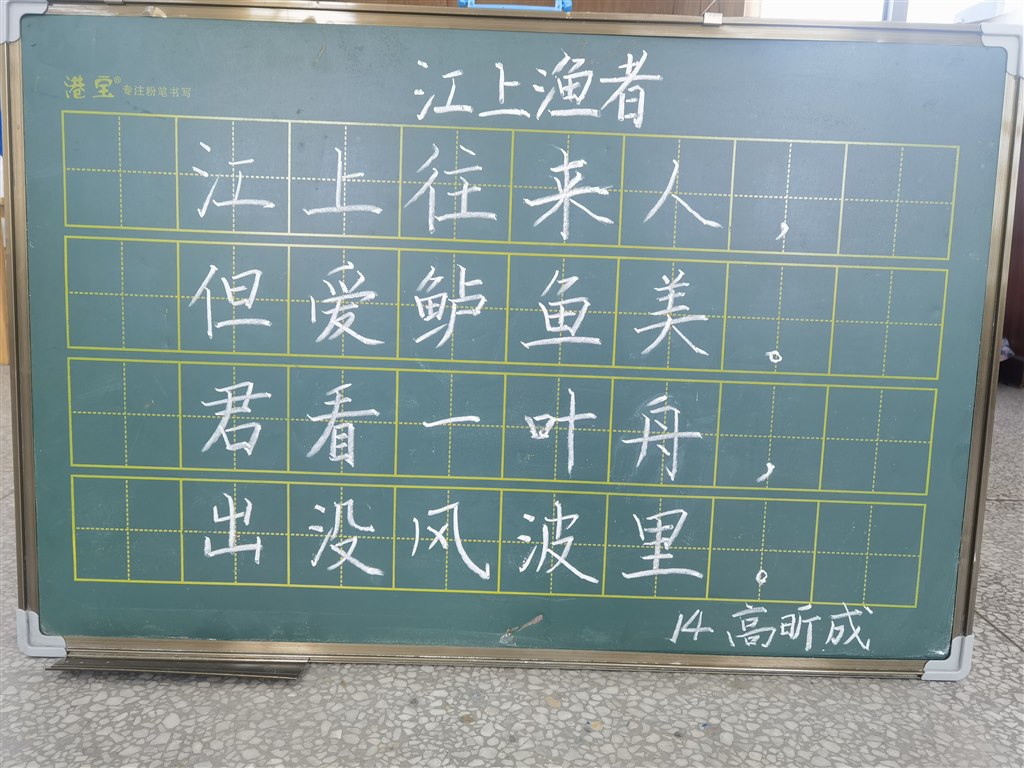 港宝® 专注粉笔书写
江上渔者
江上往来人，
但爱鲈鱼美。
君看一叶舟，
出没风波里。
14 高昕成